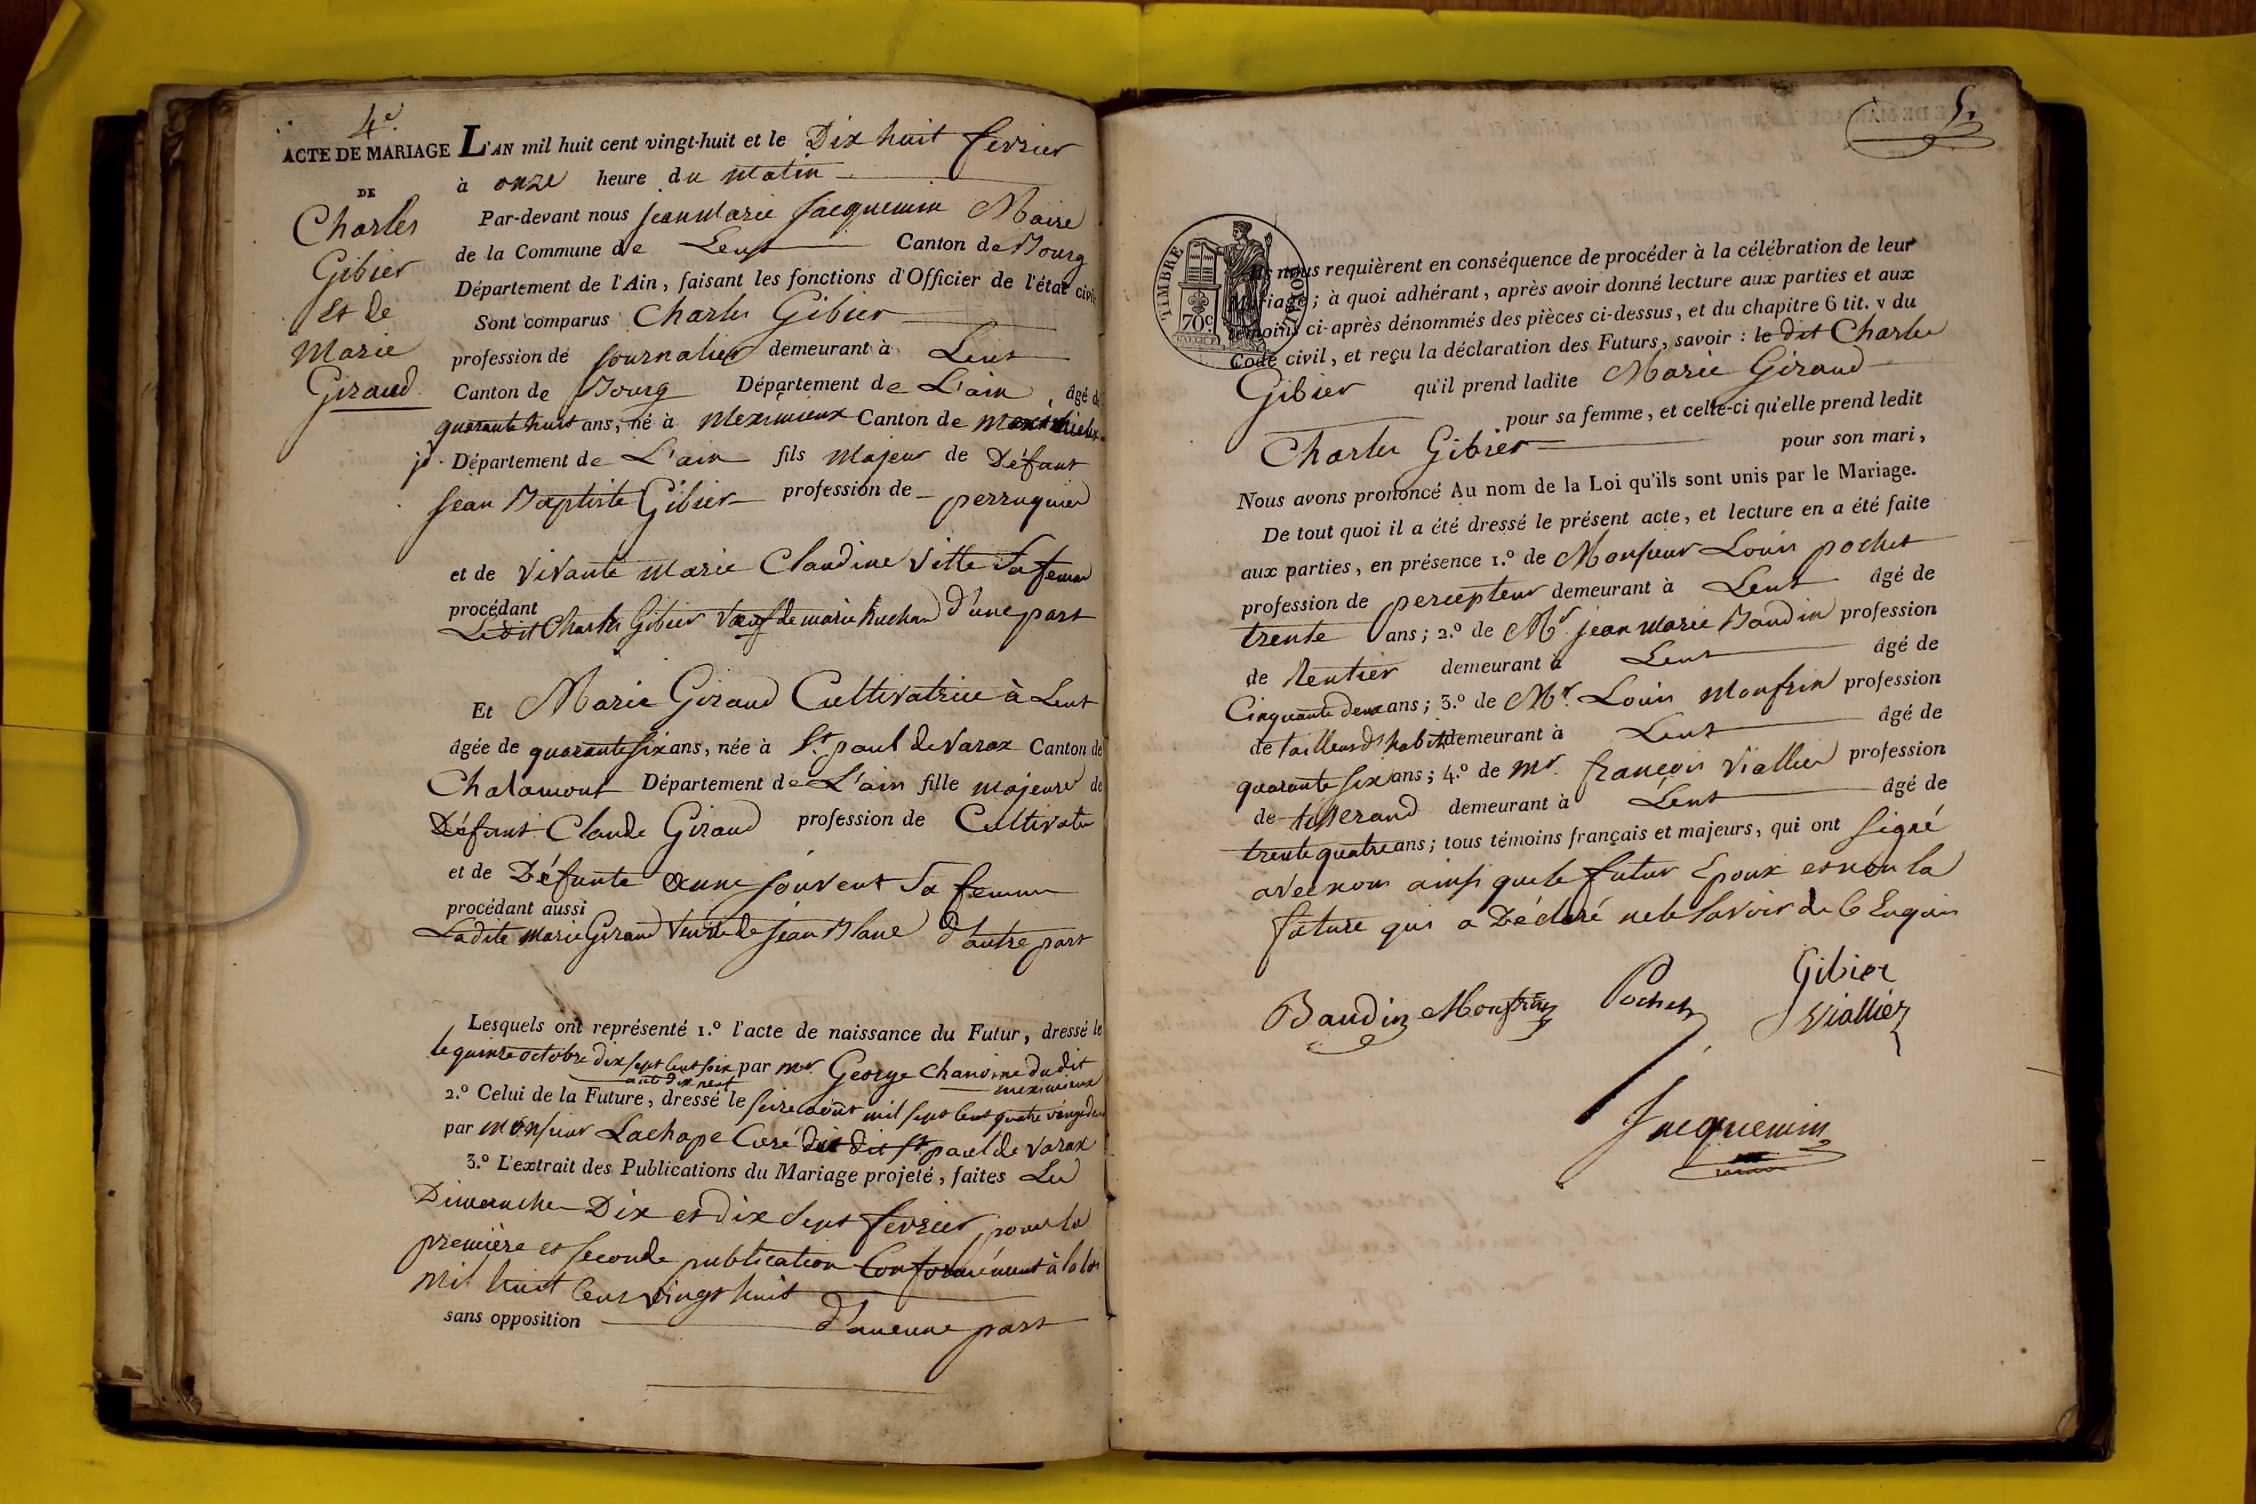 4e.
ACTE DE MARIAGE
DE
Charles
Gibier
et de
Marie
Giraud
L'AN mil huit cent vingt-huit et le Dix huit fevrier
à onze heure du matin
Par-devant nous jean Marie Jacquemin Maire
de la Commune de Lent Canton de Bourg
Département de l'Ain, faisant les fonctions d'Officier de l'état civil
Sont comparus Charles Gibier
profession de journalier demeurant à Lent
Canton de Bourg Département de L'ain âgé de
quarante huit ans, né à Meximieux Canton de Meximieux
Département de L'ain fils majeur de Défunt
jean Baptiste Gibier profession de perruquier
et de vivante Marie Claudine Vitte Sa femme
procédant
Ledit Charles Gibier Vœuf de marie d'une part
Et Marie Giraud Cultivatrice à Lent
âgée de quarante six ans, née à St. paul de Varax Canton de
Chalamont Département de L'ain fille majeure de
Défunt Claude Giraud profession de Cultivateur
et de Défunte anne jouvent Sa femme
procédant aussi
Ladite Marie Giraud Veuve de jean Blanc d'autre part
Lesquels ont représenté 1.º l'acte de naissance du Futur, dressé le
le quinze octobre dix sept cent soix par mr. George Chanoine du dit
ante dix neuf meximieux
2.º Celui de la Future, dressé le seize août mil sept cent quatre vingt deux
par monsieur Lachape Curé dudit St. paul de varax
3.º L'extrait des Publications du Mariage projeté, faites Les
Dimanches Dix et dix Sept fevrier pour la
première et seconde publication Conformément à la loi
mil huit cent vingt huit
sans opposition d'aucune part
5.
TIMBRE ROYAL
70c
Ils nous requièrent en conséquence de procéder à la célébration de leur
Mariage; à quoi adhérant, après avoir donné lecture aux parties et aux
témoins ci-après dénommés des pièces ci-dessus, et du chapitre 6 tit. v du
Code civil, et reçu la déclaration des Futurs, savoir: le dit Charles
Gibier qu'il prend ladite Marie Giraud
pour sa femme, et celle-ci qu'elle prend ledit
Charles Gibier pour son mari,
Nous avons prononcé Au nom de la Loi qu'ils sont unis par le Mariage.
De tout quoi il a été dressé le présent acte, et lecture en a été faite
aux parties, en présence 1.º de Monsieur Louis pochet
profession de percepteur demeurant à Lent âgé de
trente ans; 2.º de Mr. jean Marie Baudin profession
de Rentier demeurant à Lent âgé de
Cinquante deux ans; 3.º de Mr. Louis Monfrin profession
de tailleur d'habits demeurant à Lent âgé de
quarante six ans; 4.º de mr. françois Viallier profession
de tisserand demeurant à Lent âgé de
trente quatre ans; tous témoins français et majeurs, qui ont signé
avec nous ainsi que le futur Epoux et non la
future qui a Déclaré ne le Savoir de ce Enquis
Baudin Monfrin Pochet Gibier
Viallier
Jacquemin